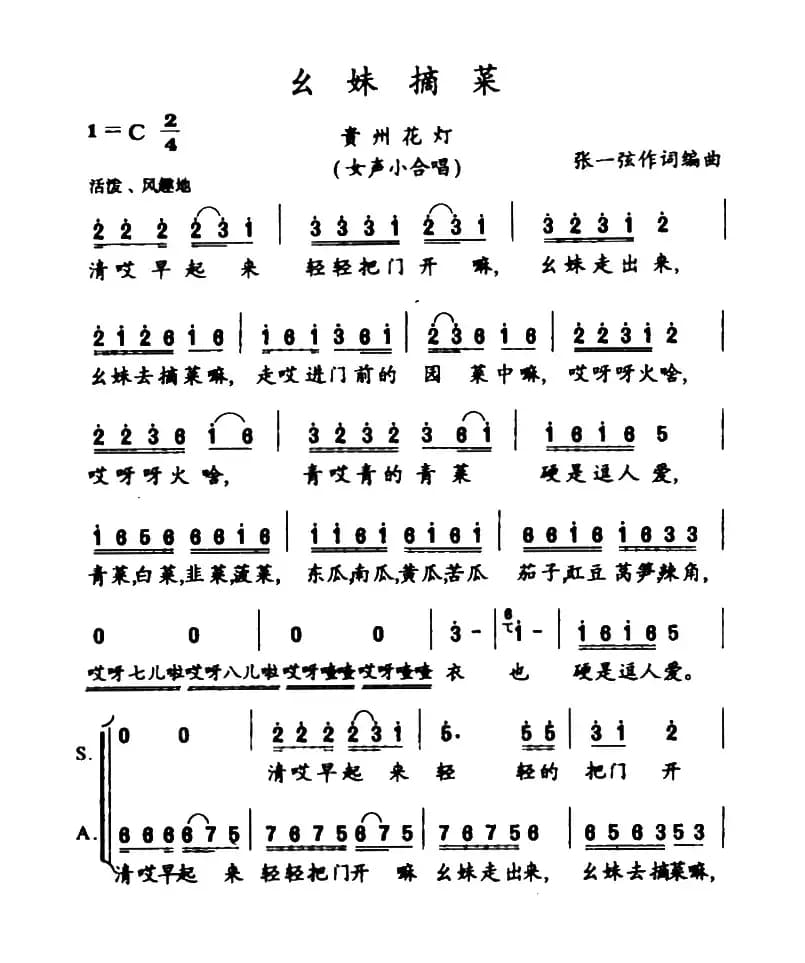 幺妹摘菜
1=C 2/4
貴州花灯
(女声小合唱)
张一弦作词编曲
活泼、风趣地
2 2 2 2 3 1 | 3 3 3 1 2 3 1 | 3 2 3 1 2 |
清哎早起来 轻轻把门开嘛, 幺妹走出来,
2 1 2 6 1 6 | 1 6 1 3 6 1 | 2 3 6 1 6 | 2 2 3 1 2 |
幺妹去摘菜嘛, 走哎进门前的 园菜中嘛, 哎呀呀火啥,
2 2 3 6 1 6 | 3 2 3 2 3 6 1 | 1 6 1 6 5 |
哎呀呀火啥, 青哎青的青菜 硬是逗人爱,
1 6 5 6 6 6 1 6 | 1 1 6 1 6 1 6 1 | 6 6 1 6 1 6 3 3 |
青菜,白菜,韭菜,菠菜, 东瓜,南瓜,黄瓜,苦瓜 茄子,豇豆莴笋,辣角,
0 0 | 0 0 | 3 - | 6 1 - | 1 6 1 6 5 |
哎呀七儿啦哎呀八儿啦哎呀喳喳哎呀喳喳 衣 也 硬是逗人爱。
S. 0 0 | 2 2 2 2 3 1 | 5. 5 5 | 3 1 2 |
清哎早起来 轻 轻的把门开
A. 6 6 6 6 7 5 | 7 6 7 5 6 7 5 | 7 6 7 5 6 | 6 5 6 3 5 3 |
清哎早起来 轻轻把门开嘛 幺妹走出来, 幺妹去摘菜嘛,